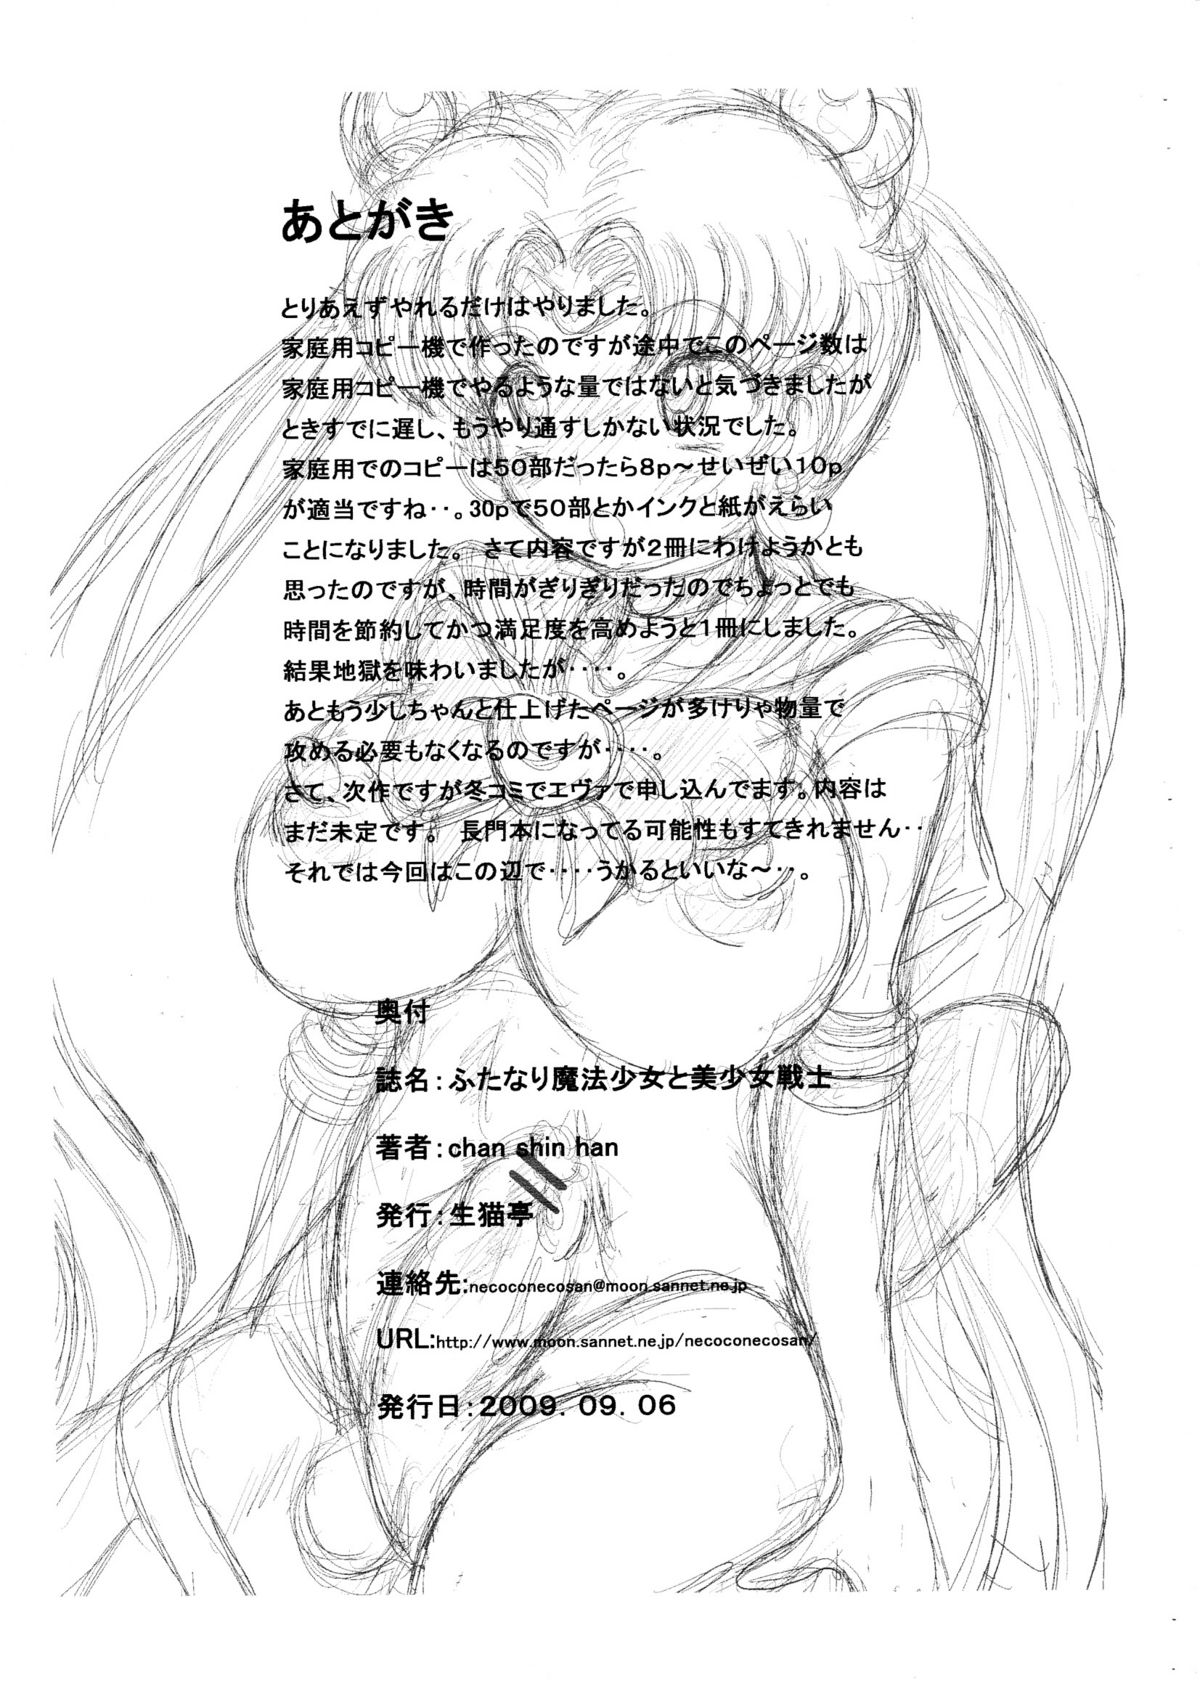 あとがき
とりあえずやれるだけはやりました。
家庭用コピー機で作ったのですが途中でこのページ数は
家庭用コピー機でやるような量ではないと気づきましたが
ときすでに遅し、もうやり通すしかない状況でした。
家庭用でのコピーは50部だったら8p～せいぜい10p
が適当ですね‥。30pで50部とかインクと紙がえらい
ことになりました。 さて内容ですが2冊にわけようかとも
思ったのですが、時間がぎりぎりだったのでちょっとでも
時間を節約してかつ満足度を高めようと1冊にしました。
結果地獄を味わいましたが‥‥。
あともう少しちゃんと仕上げたページが多けりゃ物量で
攻める必要もなくなるのですが‥‥。
さて、次作ですが冬コミでエヴァで申し込んでます。内容は
まだ未定です。 長門本になってる可能性もすてきれません‥
それでは今回はこの辺で‥‥うかるといいな～‥。
奥付
誌名：ふたなり魔法少女と美少女戦士
著者：chan shin han
発行：生猫亭
連絡先:necoconecosan@moon.sannet.ne.jp
URL:http://www.moon.sannet.ne.jp/necoconecosan/
発行日：2009．09．06